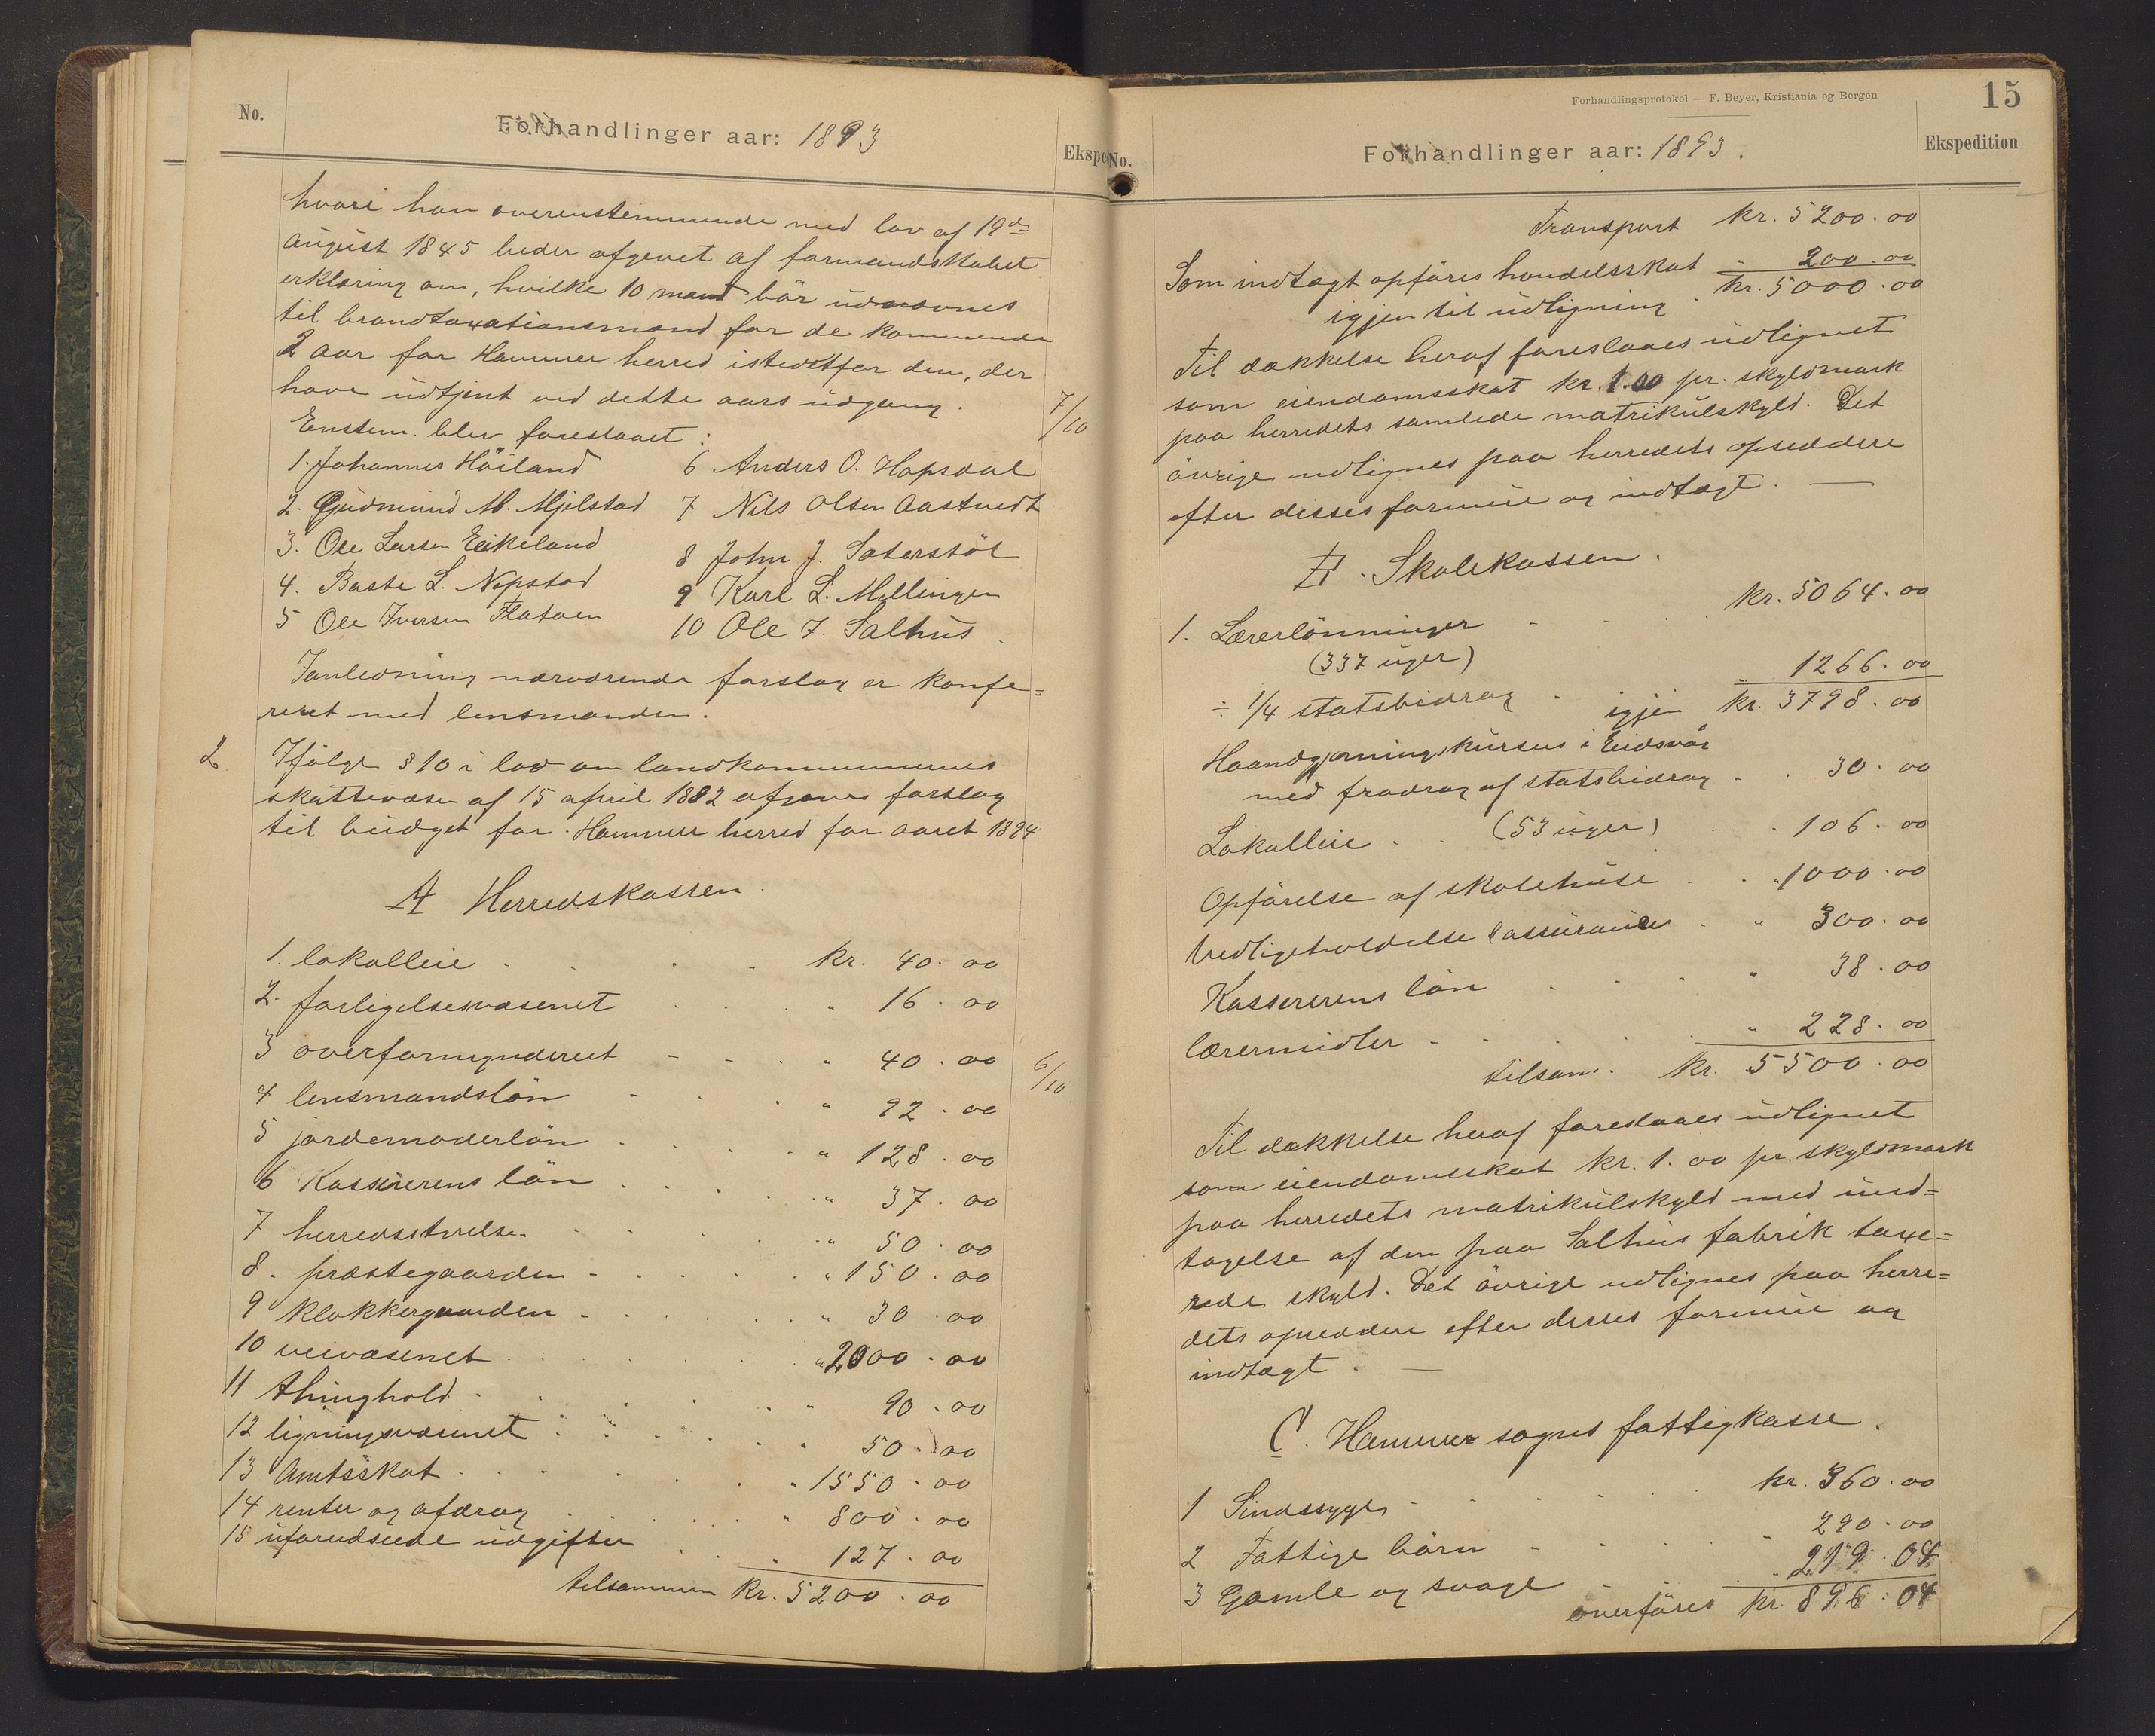 No.
Forhandlinger aar: 1893
Ekspe
hvori han overensstemmende med lov af 19de
august 1845 beder afgivet af formandskabet
erklæring om, hvilke 10 mænd bör udnævnes
til brandtaxationsmænd for de kommende
2 aar for Hammer herred istedetfor dem, der
have udtjent ved dette aars udgang.
7/10
Enstem. blev foreslaaet :
1. Johannes Höiland
2. Gudmund M. Mjelstad
3. Ole Larsen Eikeland
4. Baste L. Nepstad
5 Ole Iversen Flatöen
6 Anders O. Hopsdal
7 Nils Olsen Aastvedt
8 John J. Sæterstöl
9 Karl L. Mellingen
10 Ole J. Salhus.
Ianledning nærværende forslag er konfe=
reret med lensmanden.
2. Ifölge § 10 i lov om landkommunernes
skattevæsen af 15 april 1882 afgives forslag
til budget for Hammer herred for aaret 1894
A Herredskassen.
1. lokalleie . . . kr. 40.00
2. forligelsesvæsenet . . . " 16.00
3 overformynderiet - - . . " 40.00
6/10
4 lensmandslön - . . " 92.00
5 jordemoderlön . . . " 128.00
6 Kassererens lön . . . " 37.00
7 herredsstyrelse . . . " 50.00
8. præstegaarden - . . . " 150.00
9 klokkergaarden - . . . " 30.00
10 veivæsenet . . . " 2000.00
11 thinghold . . . " 90.00
12 ligningsvæsenet . . . " 50.00
13 Amtsskat . . . " 1550.00
14 renter og afdrag . . . " 800.00
15 uforudseede udgifter . . . 127.00
tilsammen kr. 5200.00
Forhandlingsprotokol — F. Beyer, Kristiania og Bergen
15
No.
Forhandlinger aar: 1893.
Ekspedition
Transport kr. 5200.00
Som indtægt opföres handelsskat " 200.00
igjen til udligning . kr. 5000.00
Til dækkelse heraf foreslaaes udlignet
som eiendomsskat kr. 1.00 pr. skyldmark
paa herredets samlede matrikulskyld. Det
övrige udlignes paa herredets opsiddere
efter disses formue og indtægt. —
B. Skolekassen.
1. Lærerlönninger - . . kr. 5064.00
(337 uger)
÷ 1/4 statsbidrag - " 1266.00
igjen kr. 3798.00
Haandgjerningskursus i Eidsvåg
med fradrag af statsbidrag - . 30.00
Lokalleie . . (53 uger) . . 106.00
Opförelse af skolehuse . . " 1000.00
Vedligeholdelse & assurance . " 300.00
Kassererens lön . . . " 38.00
lærermidler - . . . " 228.00
tilsam. kr. 5500.00
Til dækkelse heraf foreslaaes udlignet
som eiendomsskat kr. 1.00 pr. skyldmark
paa herredets matrikulskyld med und=
tagelse af den paa Salhus fabrik taxe=
rede skyld. Det övrige udlignes paa herre=
dets opsiddere efter disses formue og
indtægt. —
C. Hammer sogns fattigkasse.
1 Sindssyge . . . kr. 360.00
2 Fattige börn - . . " 290.00
3 Gamle og svage . . " 219.04
overföres kr. 896.04